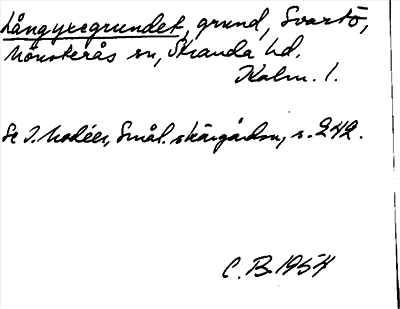 Långyxegrundet, grund, Svartö,
Mönsterås sn, Stranda hd.
Kalm. l.
Se I. Modéer, Smål. skärgårdsn, s. 242.
C.B. 1954